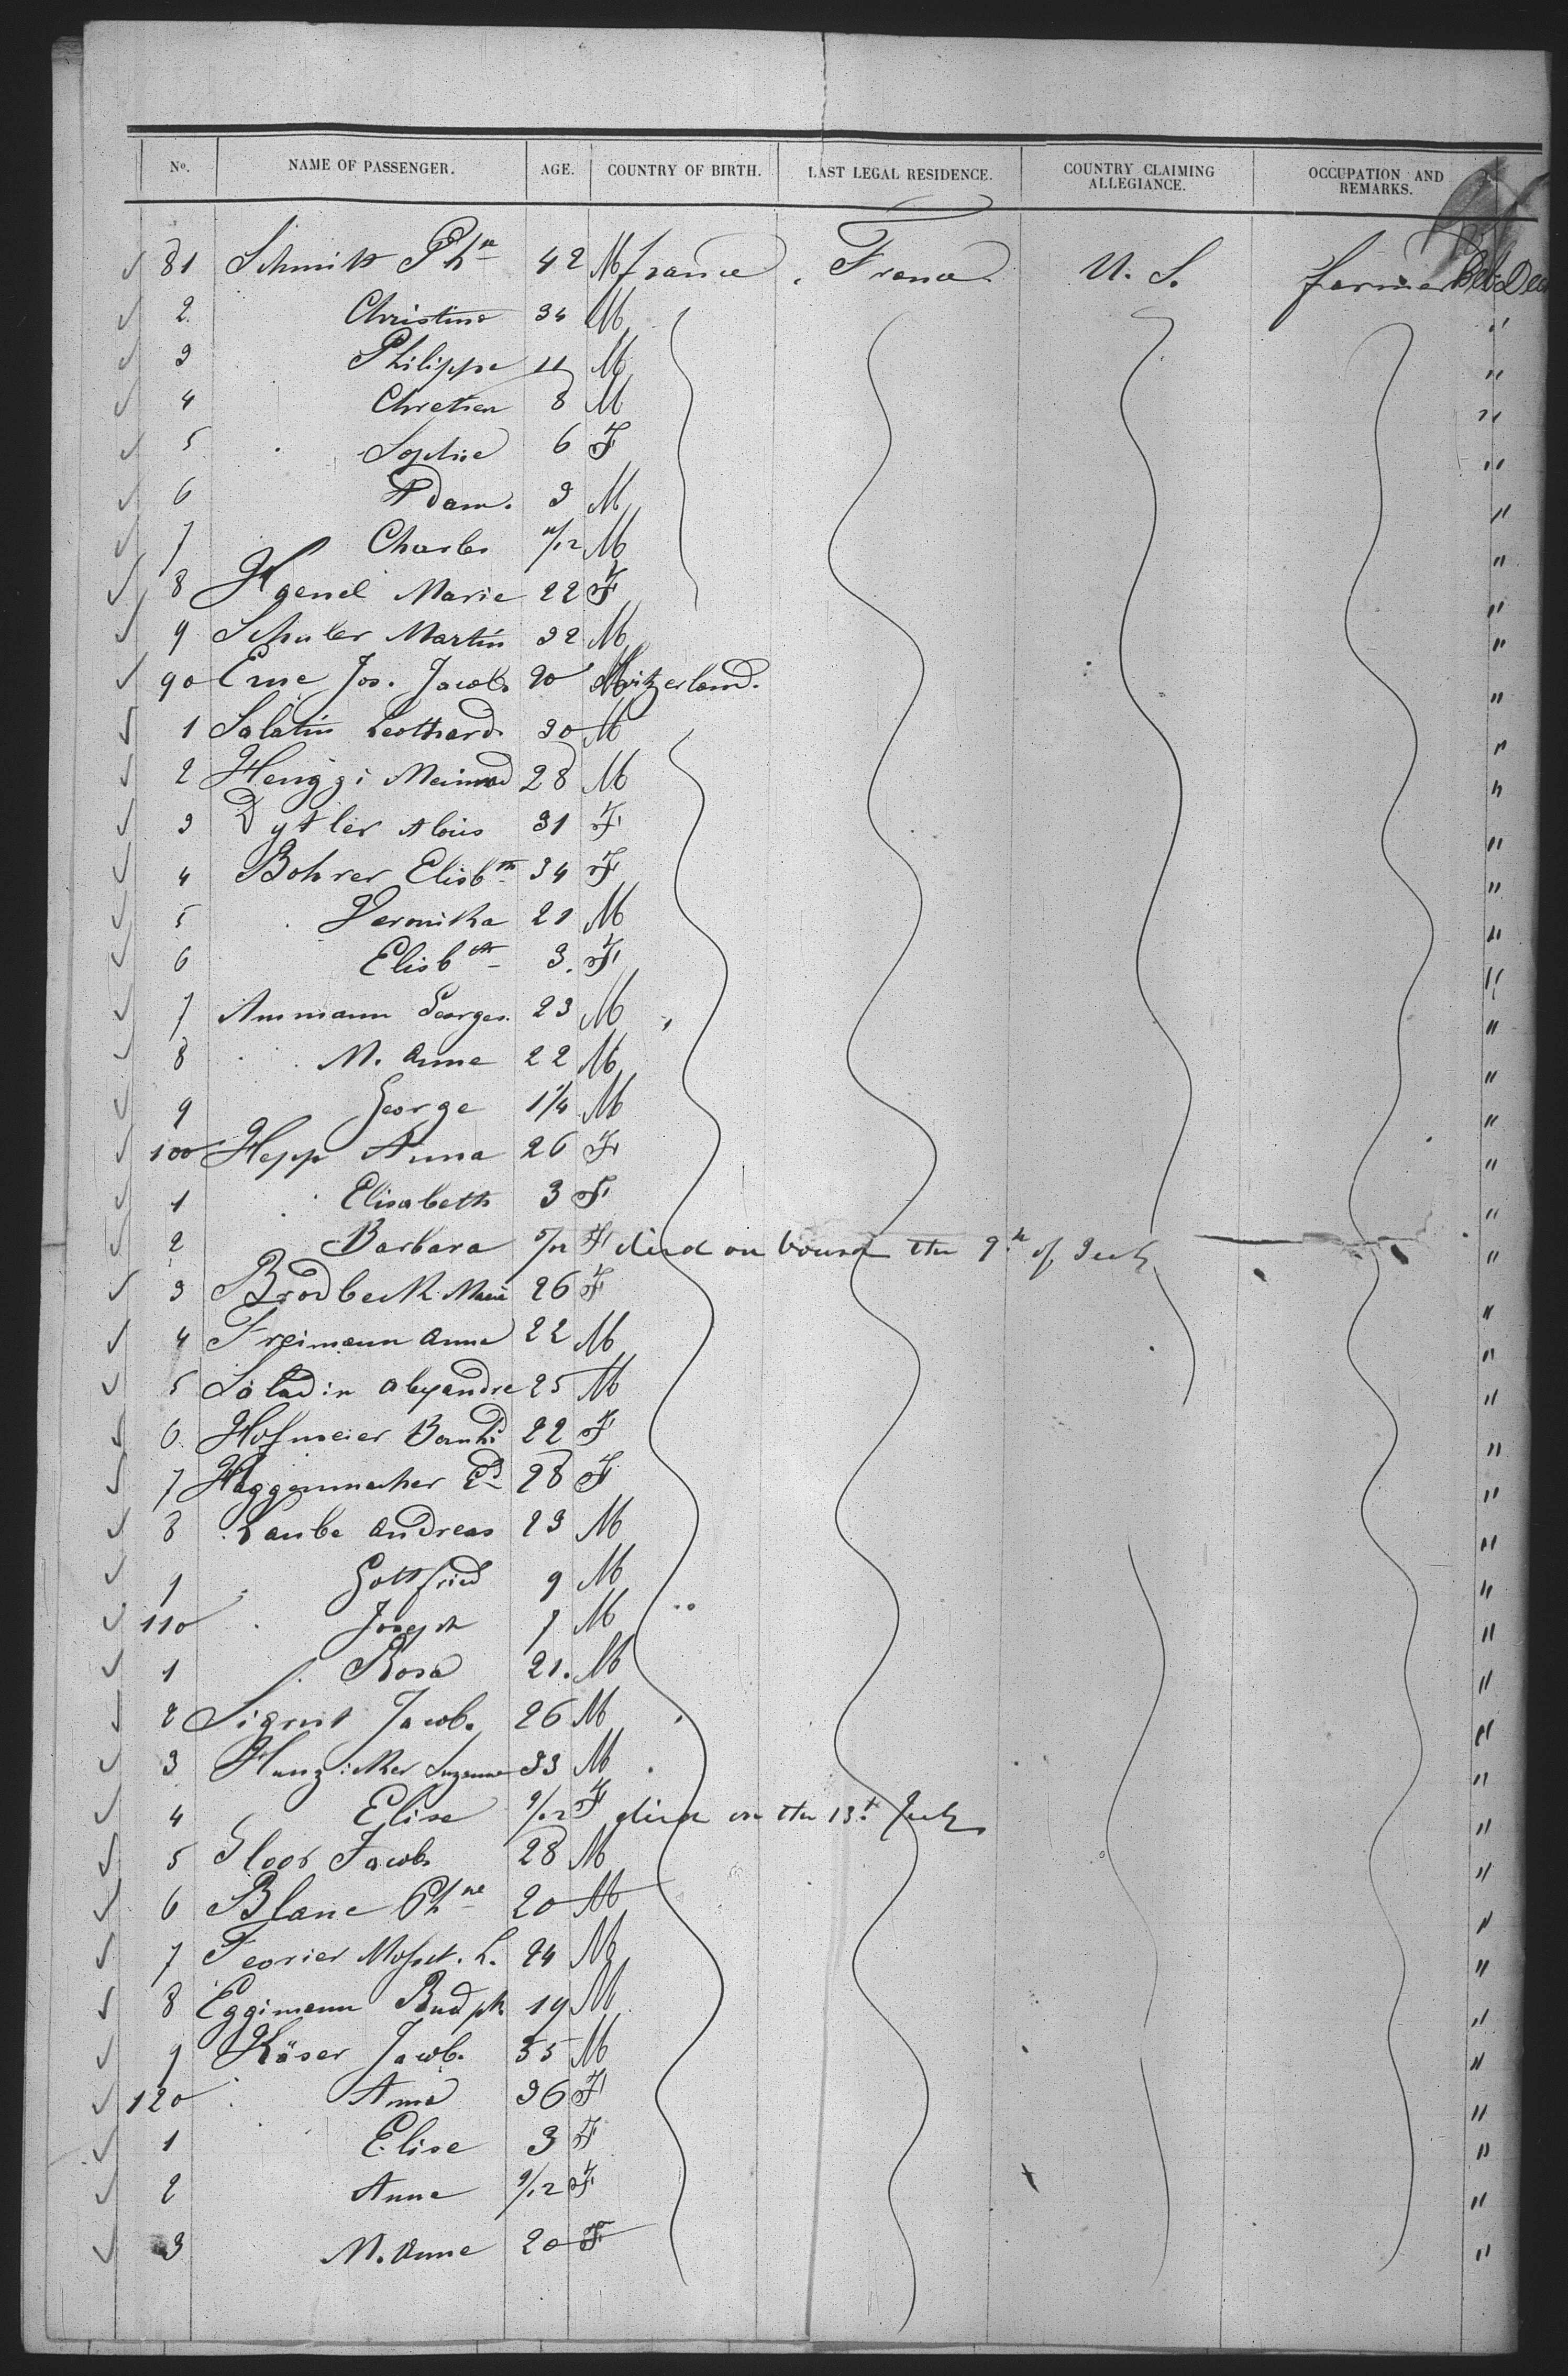 No. NAME OF PASSENGER. AGE. COUNTRY OF BIRTH. LAST LEGAL RESIDENCE. COUNTRY CLAIMING ALLEGIANCE. OCCUPATION AND REMARKS.
81 Schmitt Phn 42 M france France U. S. farmer
2 Christine 34 M "
3 Philippe 11 M "
4 Chretien 8 M "
5 Sophie 6 F "
6 Adam. 3 M "
7 Charles 11/12 M "
8 Haenel Marie 22 F "
9 Schuler Martin 32 M "
90 Erne Jos. Jacob 20 M Switzerland. "
1 Salatin Leothard 30 M "
2 Henggi Meinrad 28 M "
3 Dytler Alois 31 F "
4 Bohrer Elisbth 34 F "
5 Veronika 21 M "
6 Elisbth 3. F "
7 Ammann Georges 23 M "
8 M. Anne 22 M "
9 George 1 1/4 M "
100 Hepp Anna 26 F "
1 Elisabeth 3 F "
2 Barbara 5/12 F died on board the 9th of July "
3 Brodbeck Marie 26 F "
4 Freimann Anna 22 M "
5 Saladin Alexandre 25 M "
6 Hofmeier 22 F "
7 Haggenmacher Ed 28 F "
8 Laube Andreas 23 M "
9 Gottfried 9 M "
110 Joseph 7 M "
1 Rosa 21. M "
2 Sigrist Jacob. 26 M "
3 Hunziker Suzanne 33 M "
4 Elise 9/12 F died on the 13t July "
5 Gloor Jacob 28 M "
6 Blanc Phne 20 M "
7 L. 24 M "
8 Eggimann Rudph 19 M "
9 Käser Jacob. 35 M "
120 Anna 36 F "
1 Elise 3 F "
2 Anna 9/12 F "
3 M. Anne 20 F "